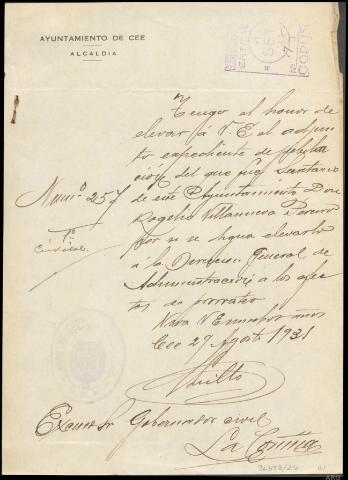 AYUNTAMIENTO DE CEE
ALCALDÍA
Tengo el honor de
elevar á V. E. el adjun
to expediente de jubila
ción del que fué Secretario
Num.º 257
de este Ayuntamiento Don
Rogelio Villanueva
por si se digna elevarlo
á la Dirección General de
Administración a los efec
tos de prorrateo
Viva V. E. muchos anos
Cee 29 Agosto 1931
Excmo Sr. Gobernador civil
La Coruña